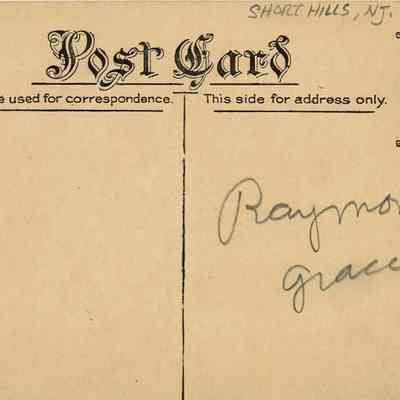 SHORT HILLS, NJ.
Post Card
e used for correspondence.
This side for address only.
Raymo
Grace